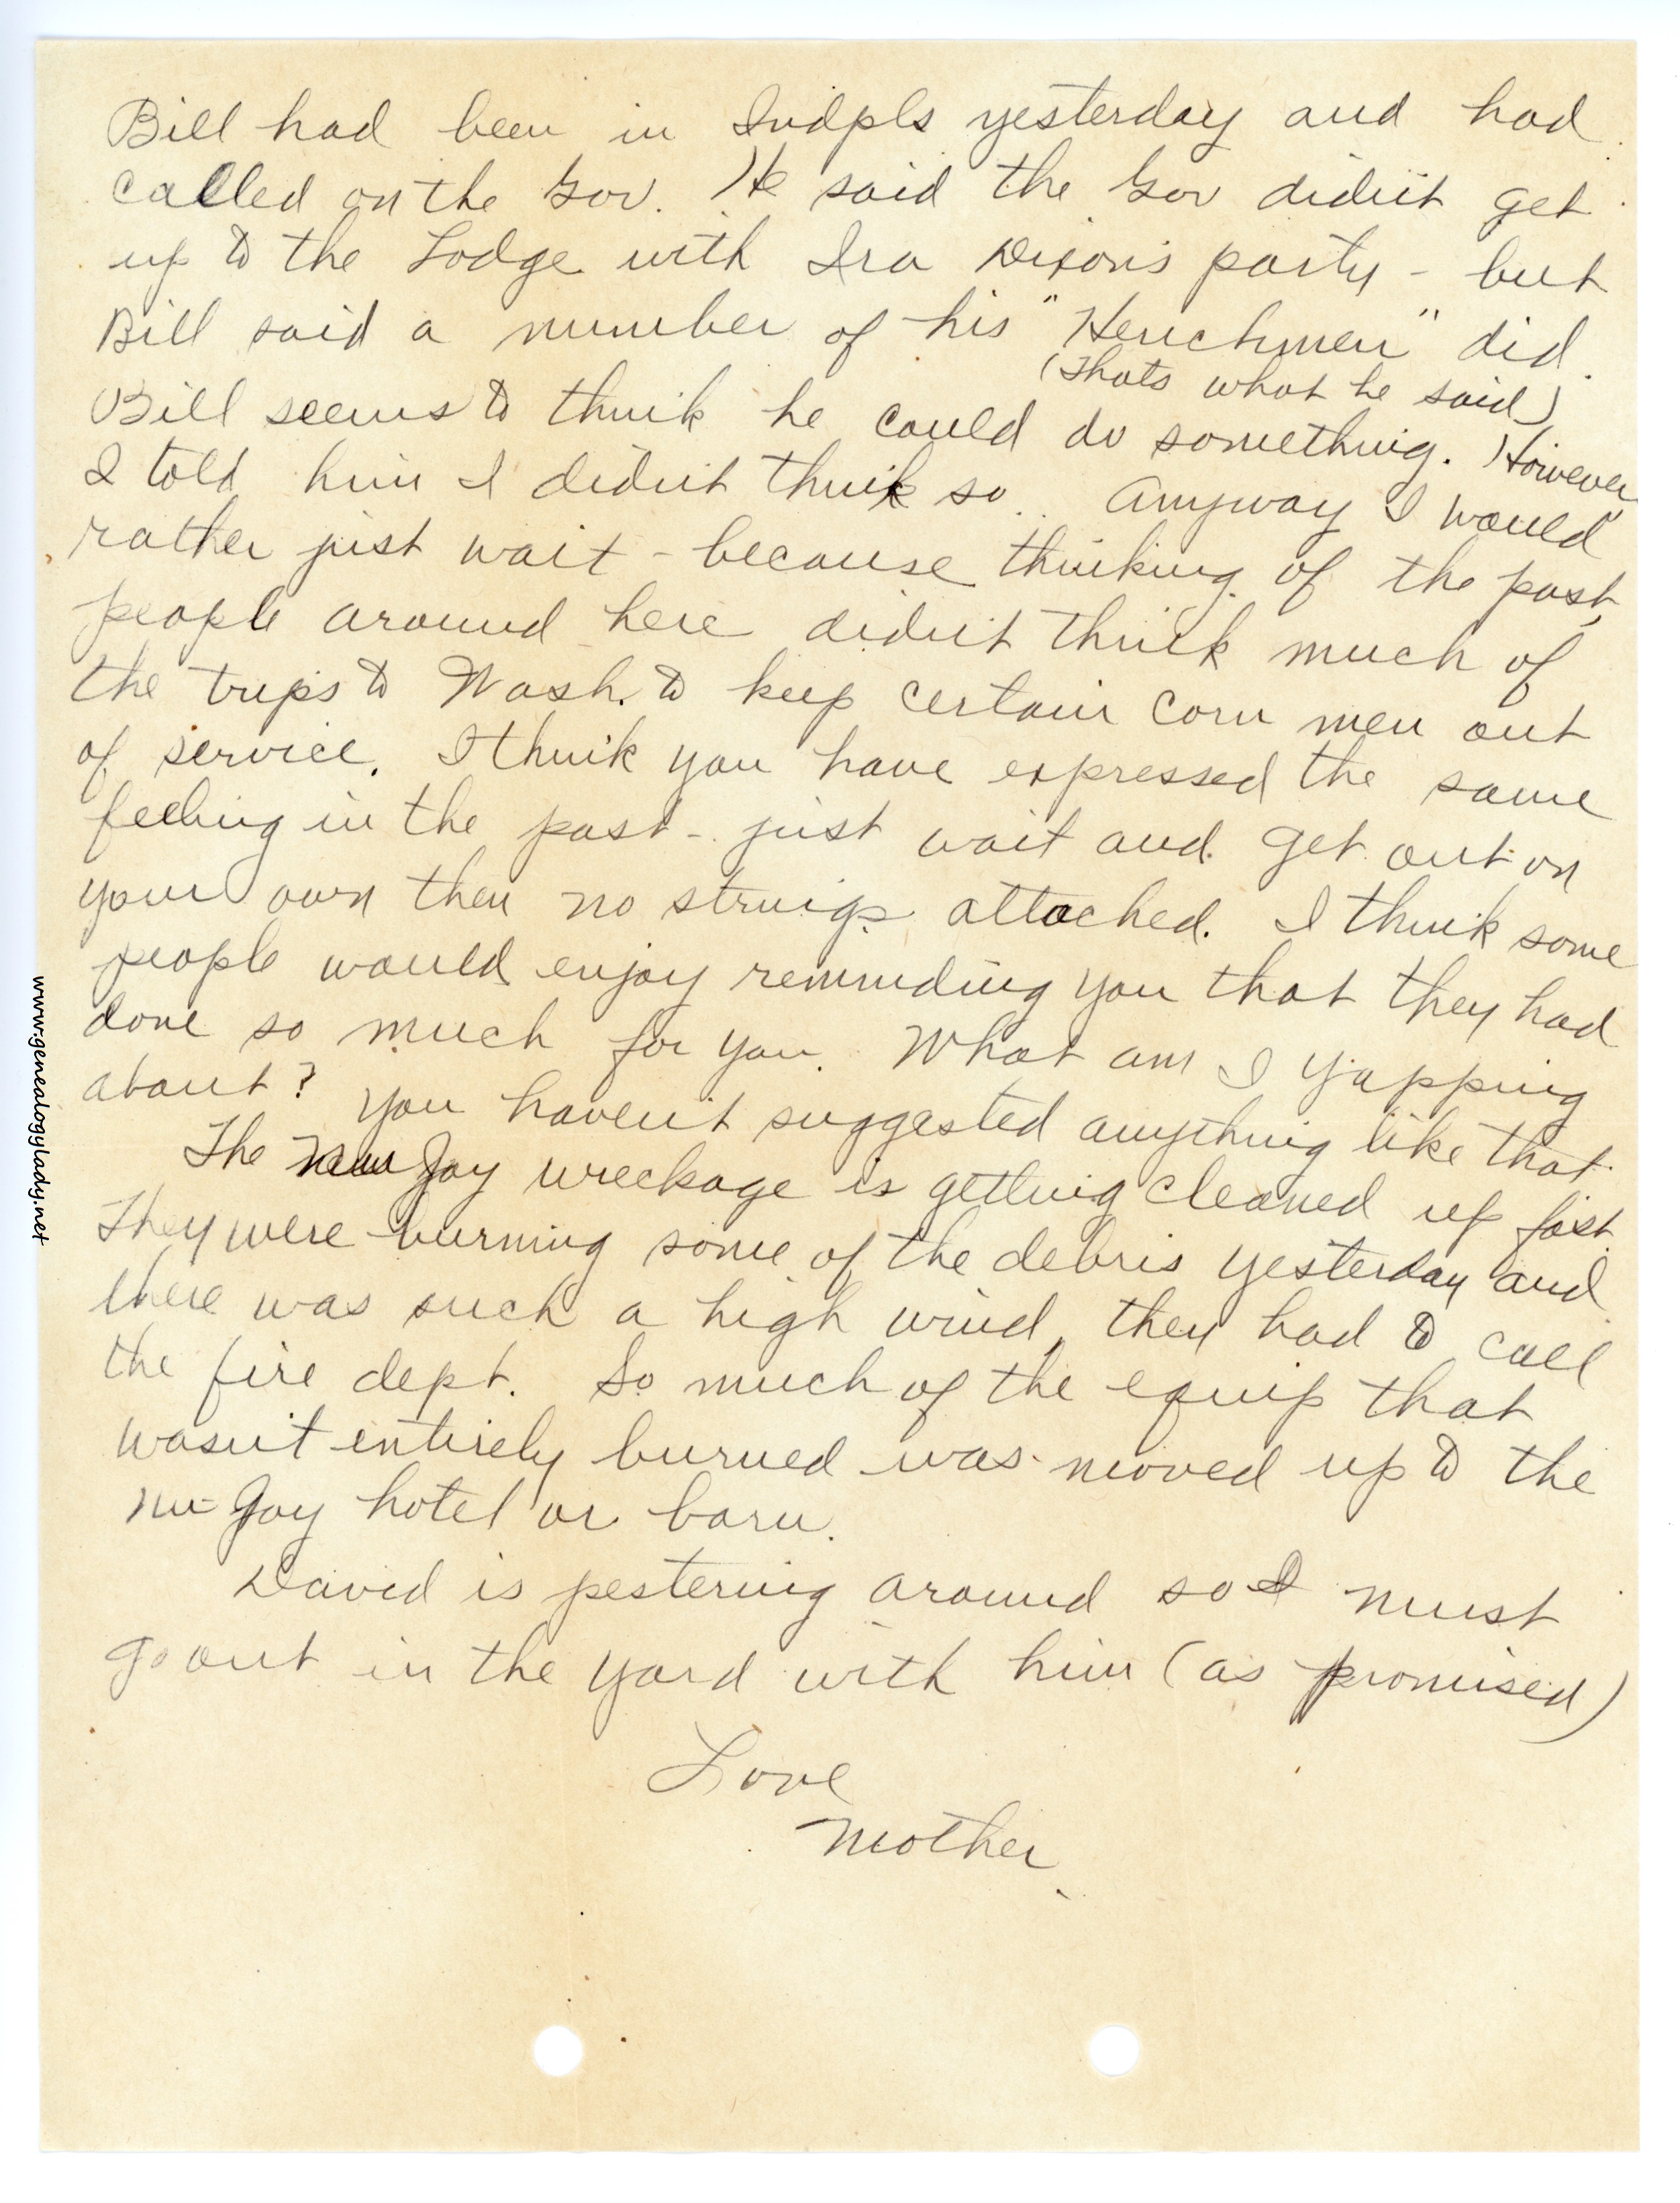 Bill had been in Indpls yesterday and had
called on the Gov. He said the Gov didn't get
up to the Lodge with Ira Dixon's party - but
Bill said a number of his "Henchmen" did.
(Thats what he said)
Bill seems to think he could do something. However
I told him I didn't think so. Anyway I would
rather just wait - because thinking of the past,
people around here didn't think much of
the trips to Wash. to keep certain corn men out
of service. I think you have expressed the same
feeling in the past - just wait and get out on
your own then no strings attached. I think some
people would enjoy reminding you that they had
done so much for you. What am I yapping
about? You haven't suggested anything like that.
The Nu Joy wreckage is getting cleaned up fast.
They were burning some of the debris yesterday and
there was such a high wind, they had to call
the fire dept. So much of the equip that
wasn't entirely burned was moved up to the
Nu-Joy hotel or barn.
David is pestering around so I must
go out in the yard with him (as promised)
Love
Mother.
www.genealogylady.net